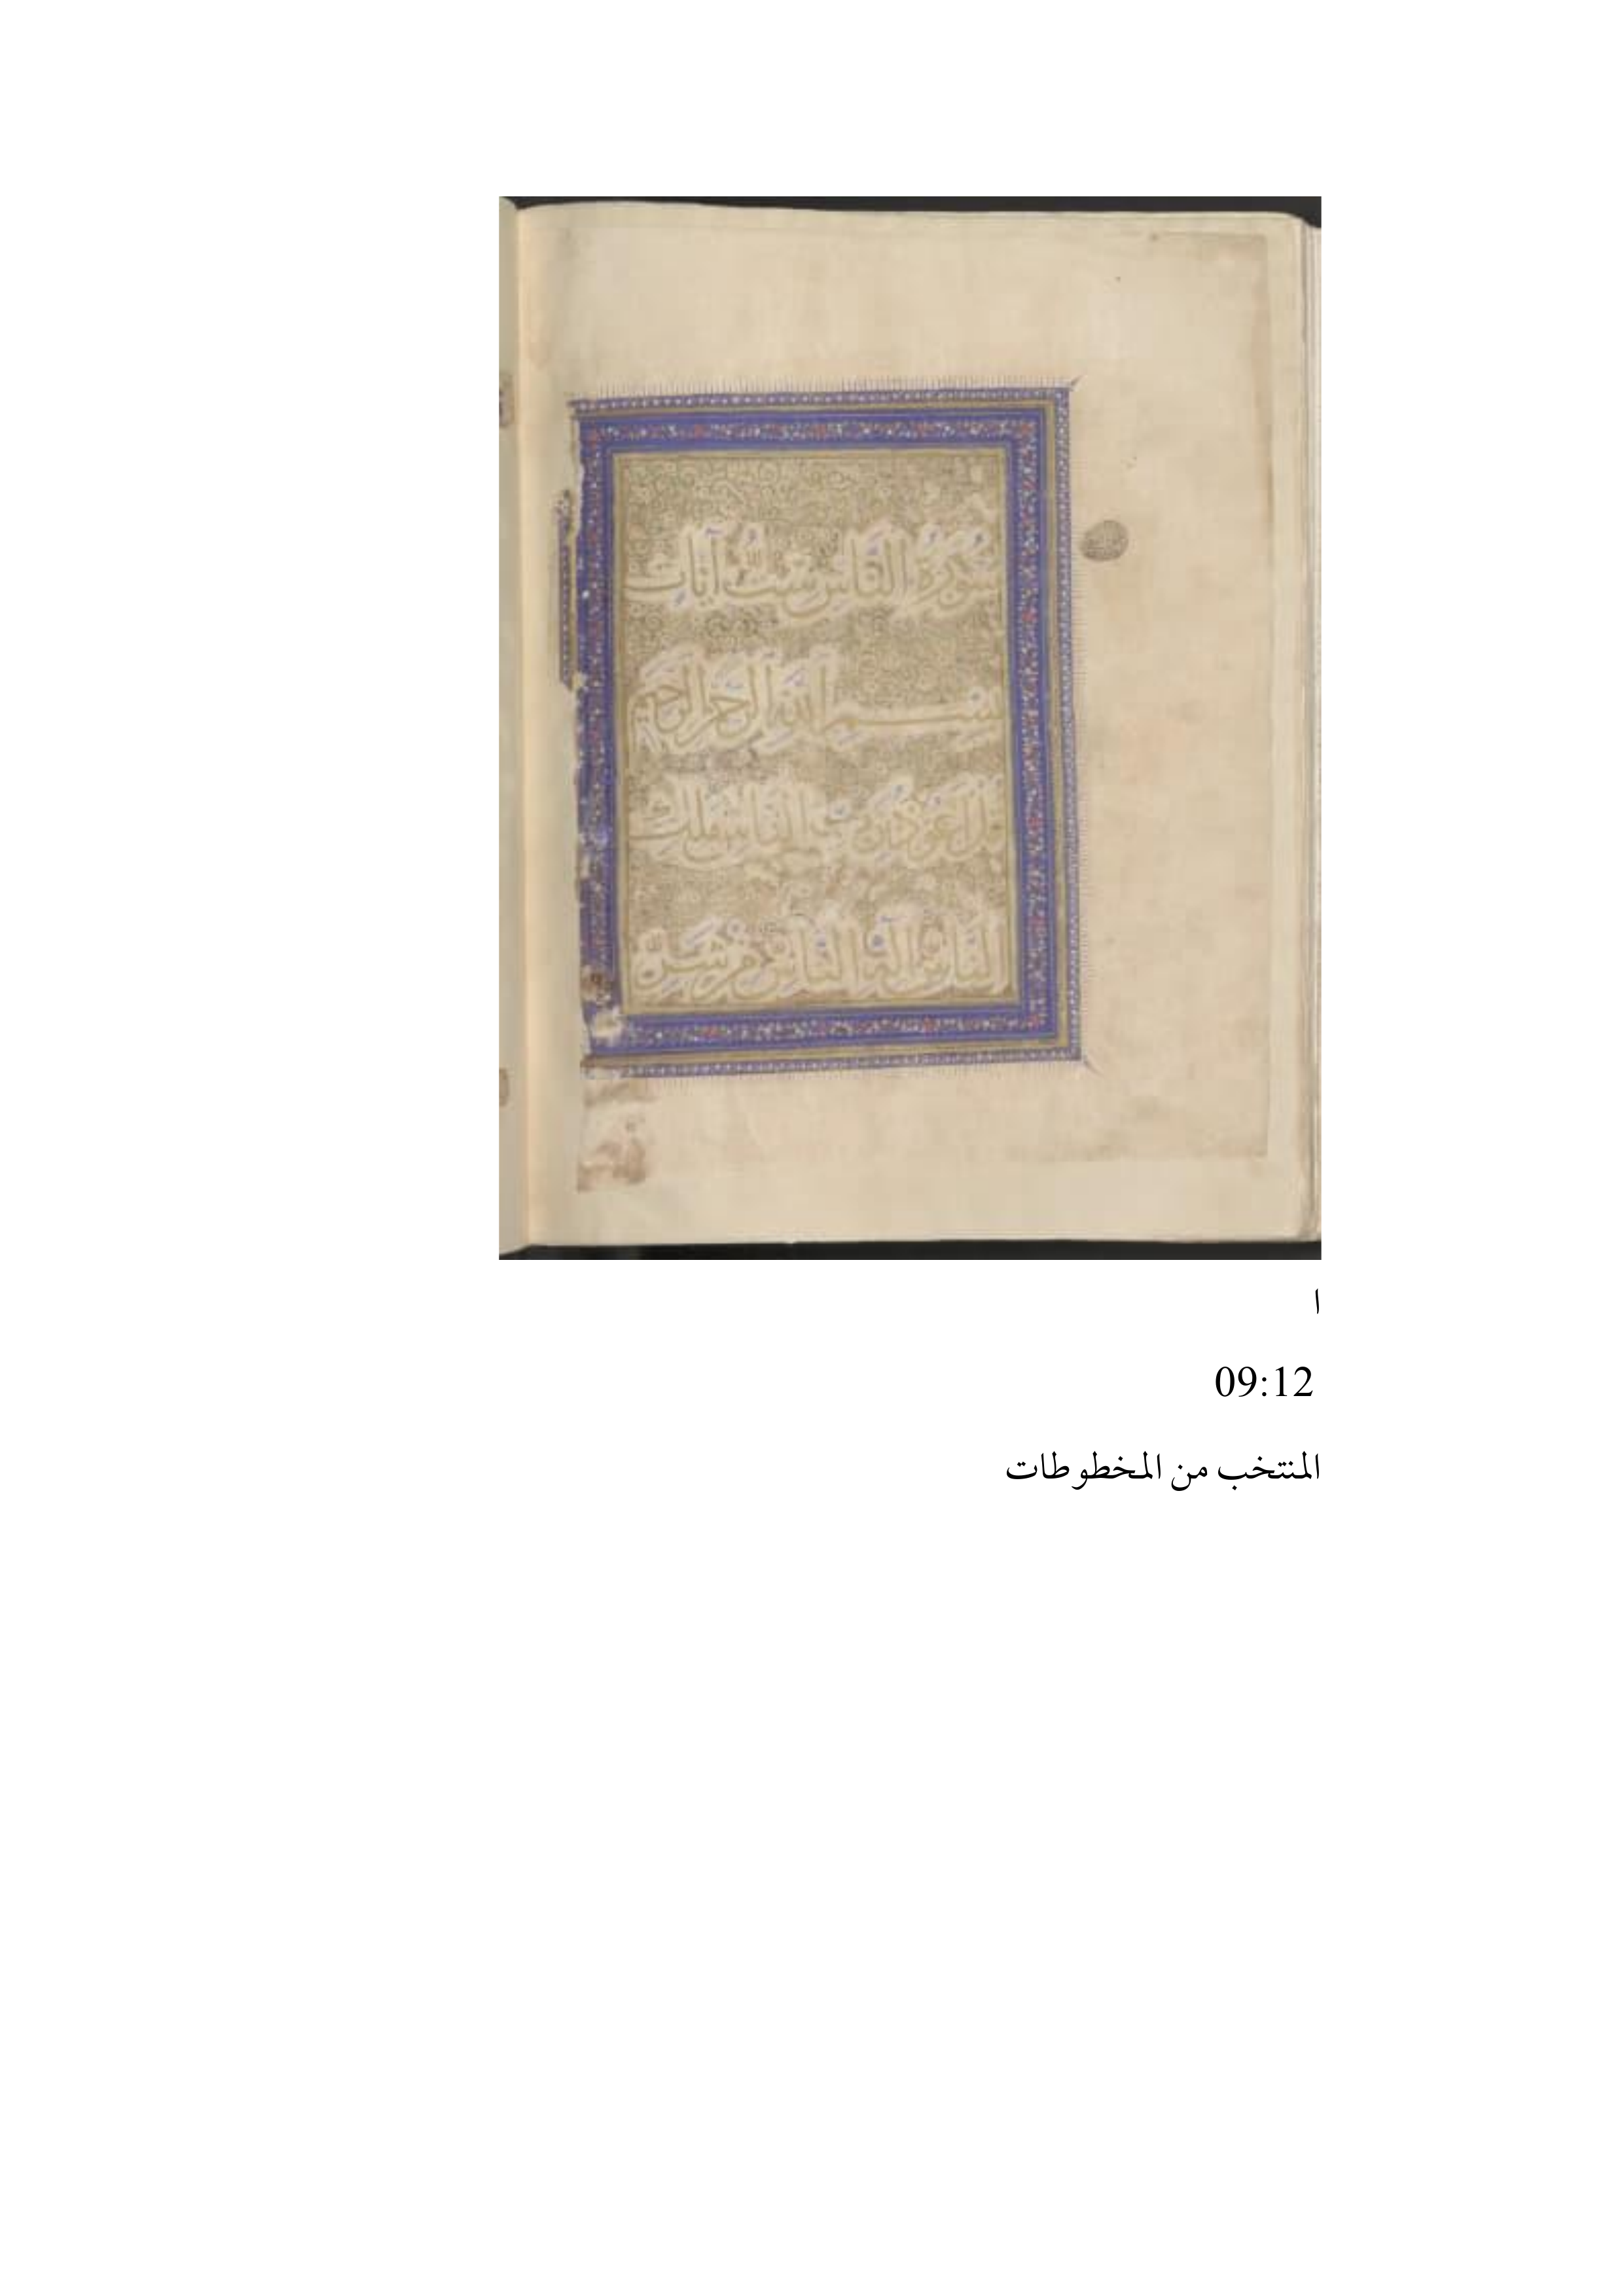 سُورَةُ النَّاسِ سِتُّ آيَاتٍ
بِسْمِ اللَّهِ الرَّحْمَنِ الرَّحِيمِ
قُلْ أَعُوذُ بِرَبِّ النَّاسِ مَلِكِ
النَّاسِ إِلَهِ النَّاسِ مِنْ شَرِّ
ا
09:12
المنتخب من المخطوطات